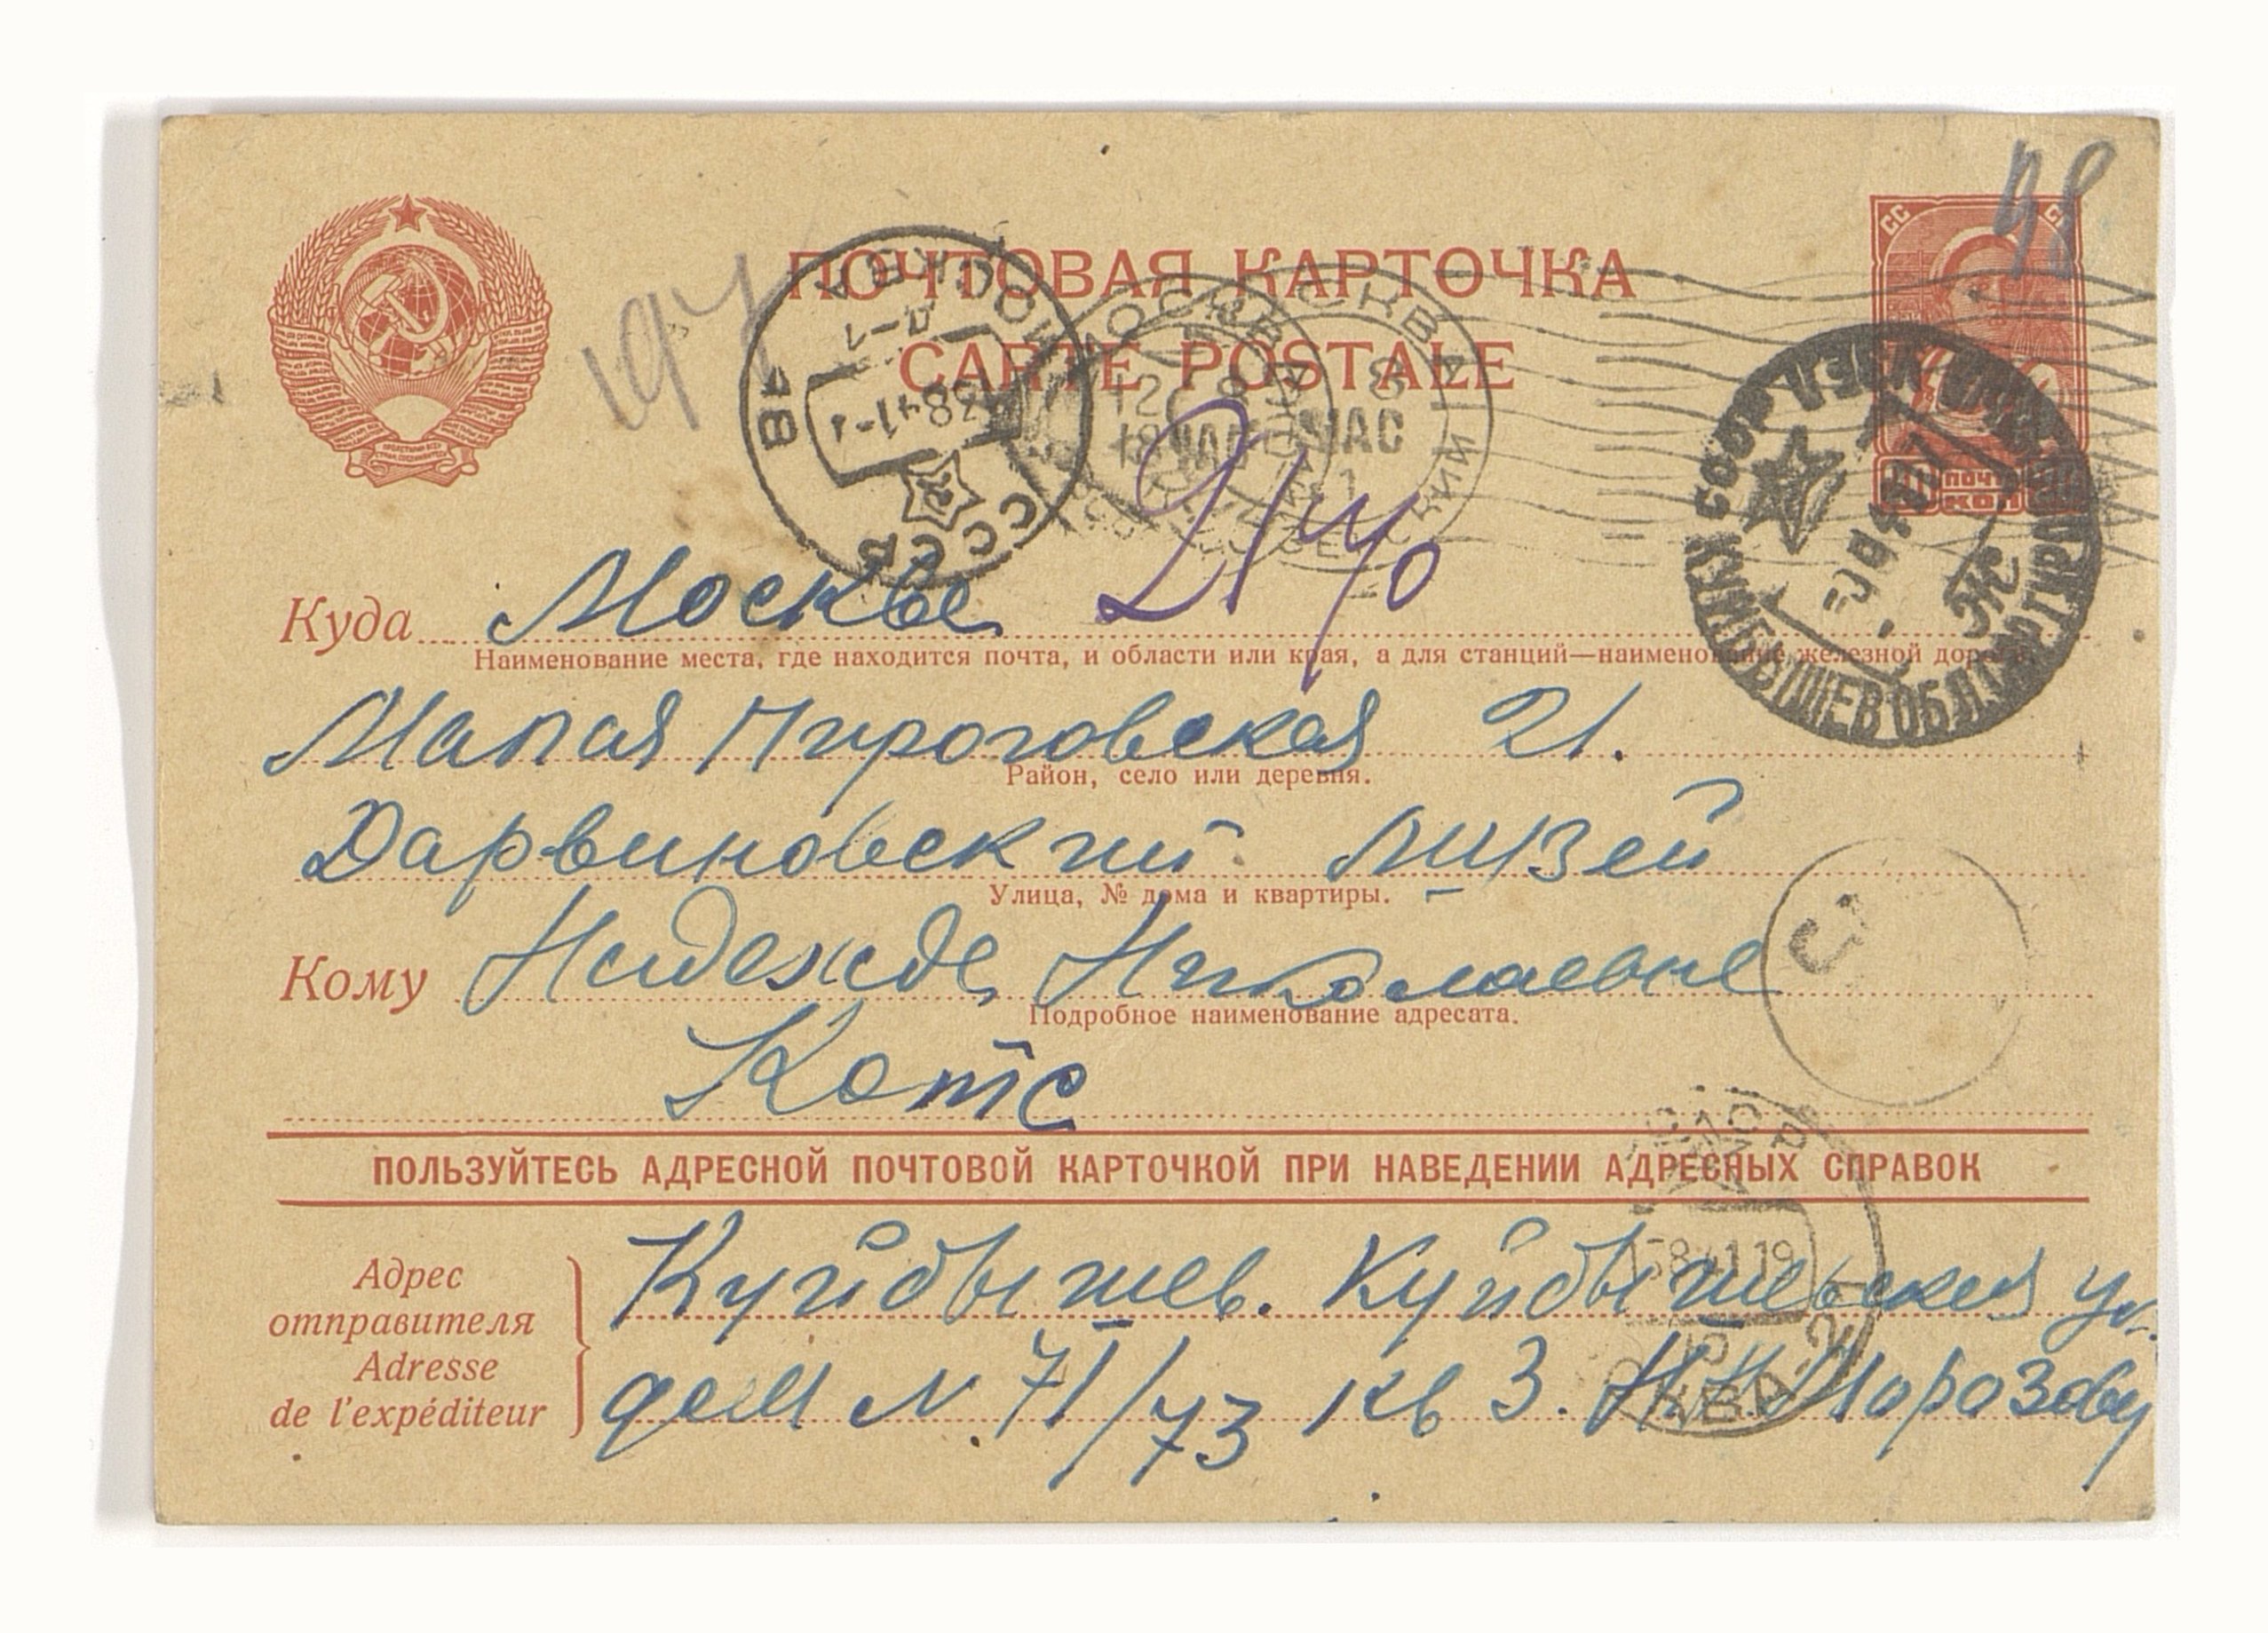 98
197
ПОЧТОВАЯ КАРТОЧКА
CARTE POSTALE
МОСКВА
СССР
КУЙБЫШЕВ ОБЛ
21 40
Куда Москве
Наименование места, где находится почта, и области или края, а для станций—наименование железной дороги.
Малая Пироговская 21.
Район, село или деревня.
Дарвиновский музей
Улица, № дома и квартиры.
Кому Надежде Николаевне
Подробное наименование адресата.
Котс
ПОЛЬЗУЙТЕСЬ АДРЕСНОЙ ПОЧТОВОЙ КАРТОЧКОЙ ПРИ НАВЕДЕНИИ АДРЕСНЫХ СПРАВОК
Адрес
отправителя
Adresse
de l'expéditeur
Куйбышев. Куйбышевская ул.
дом N 71/73 кв 3.